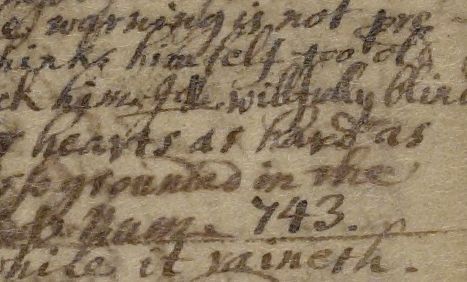 warning is not pre
thinks himself too old
ck him. wilfuly blind
hearts as hard as
grounded in the
743.
while it raineth.